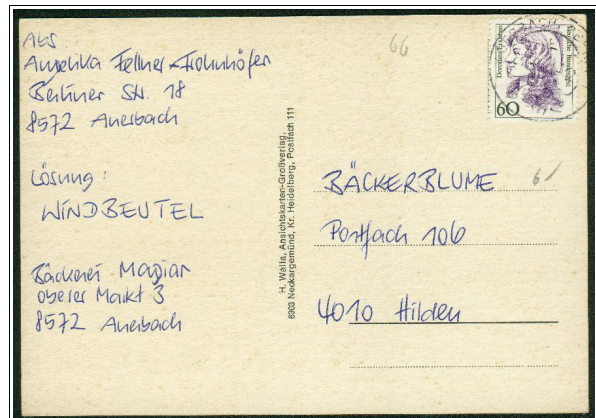 Abs.
Angelika Fellner-Frohnhöfer
Berliner Str. 18
8572 Auerbach
Lösung:
WINDBEUTEL
Bäckerei Magiar
oberer Markt 3
8572 Auerbach
H. Walla, Ansichtskarten-Großverlag,
6903 Neckargemünd, Kr. Heidelberg, Postfach 111
66
Dorothea Erxleben
Deutsche Bundespost
60
61
BÄCKERBLUME
Postfach 106
4010 Hilden